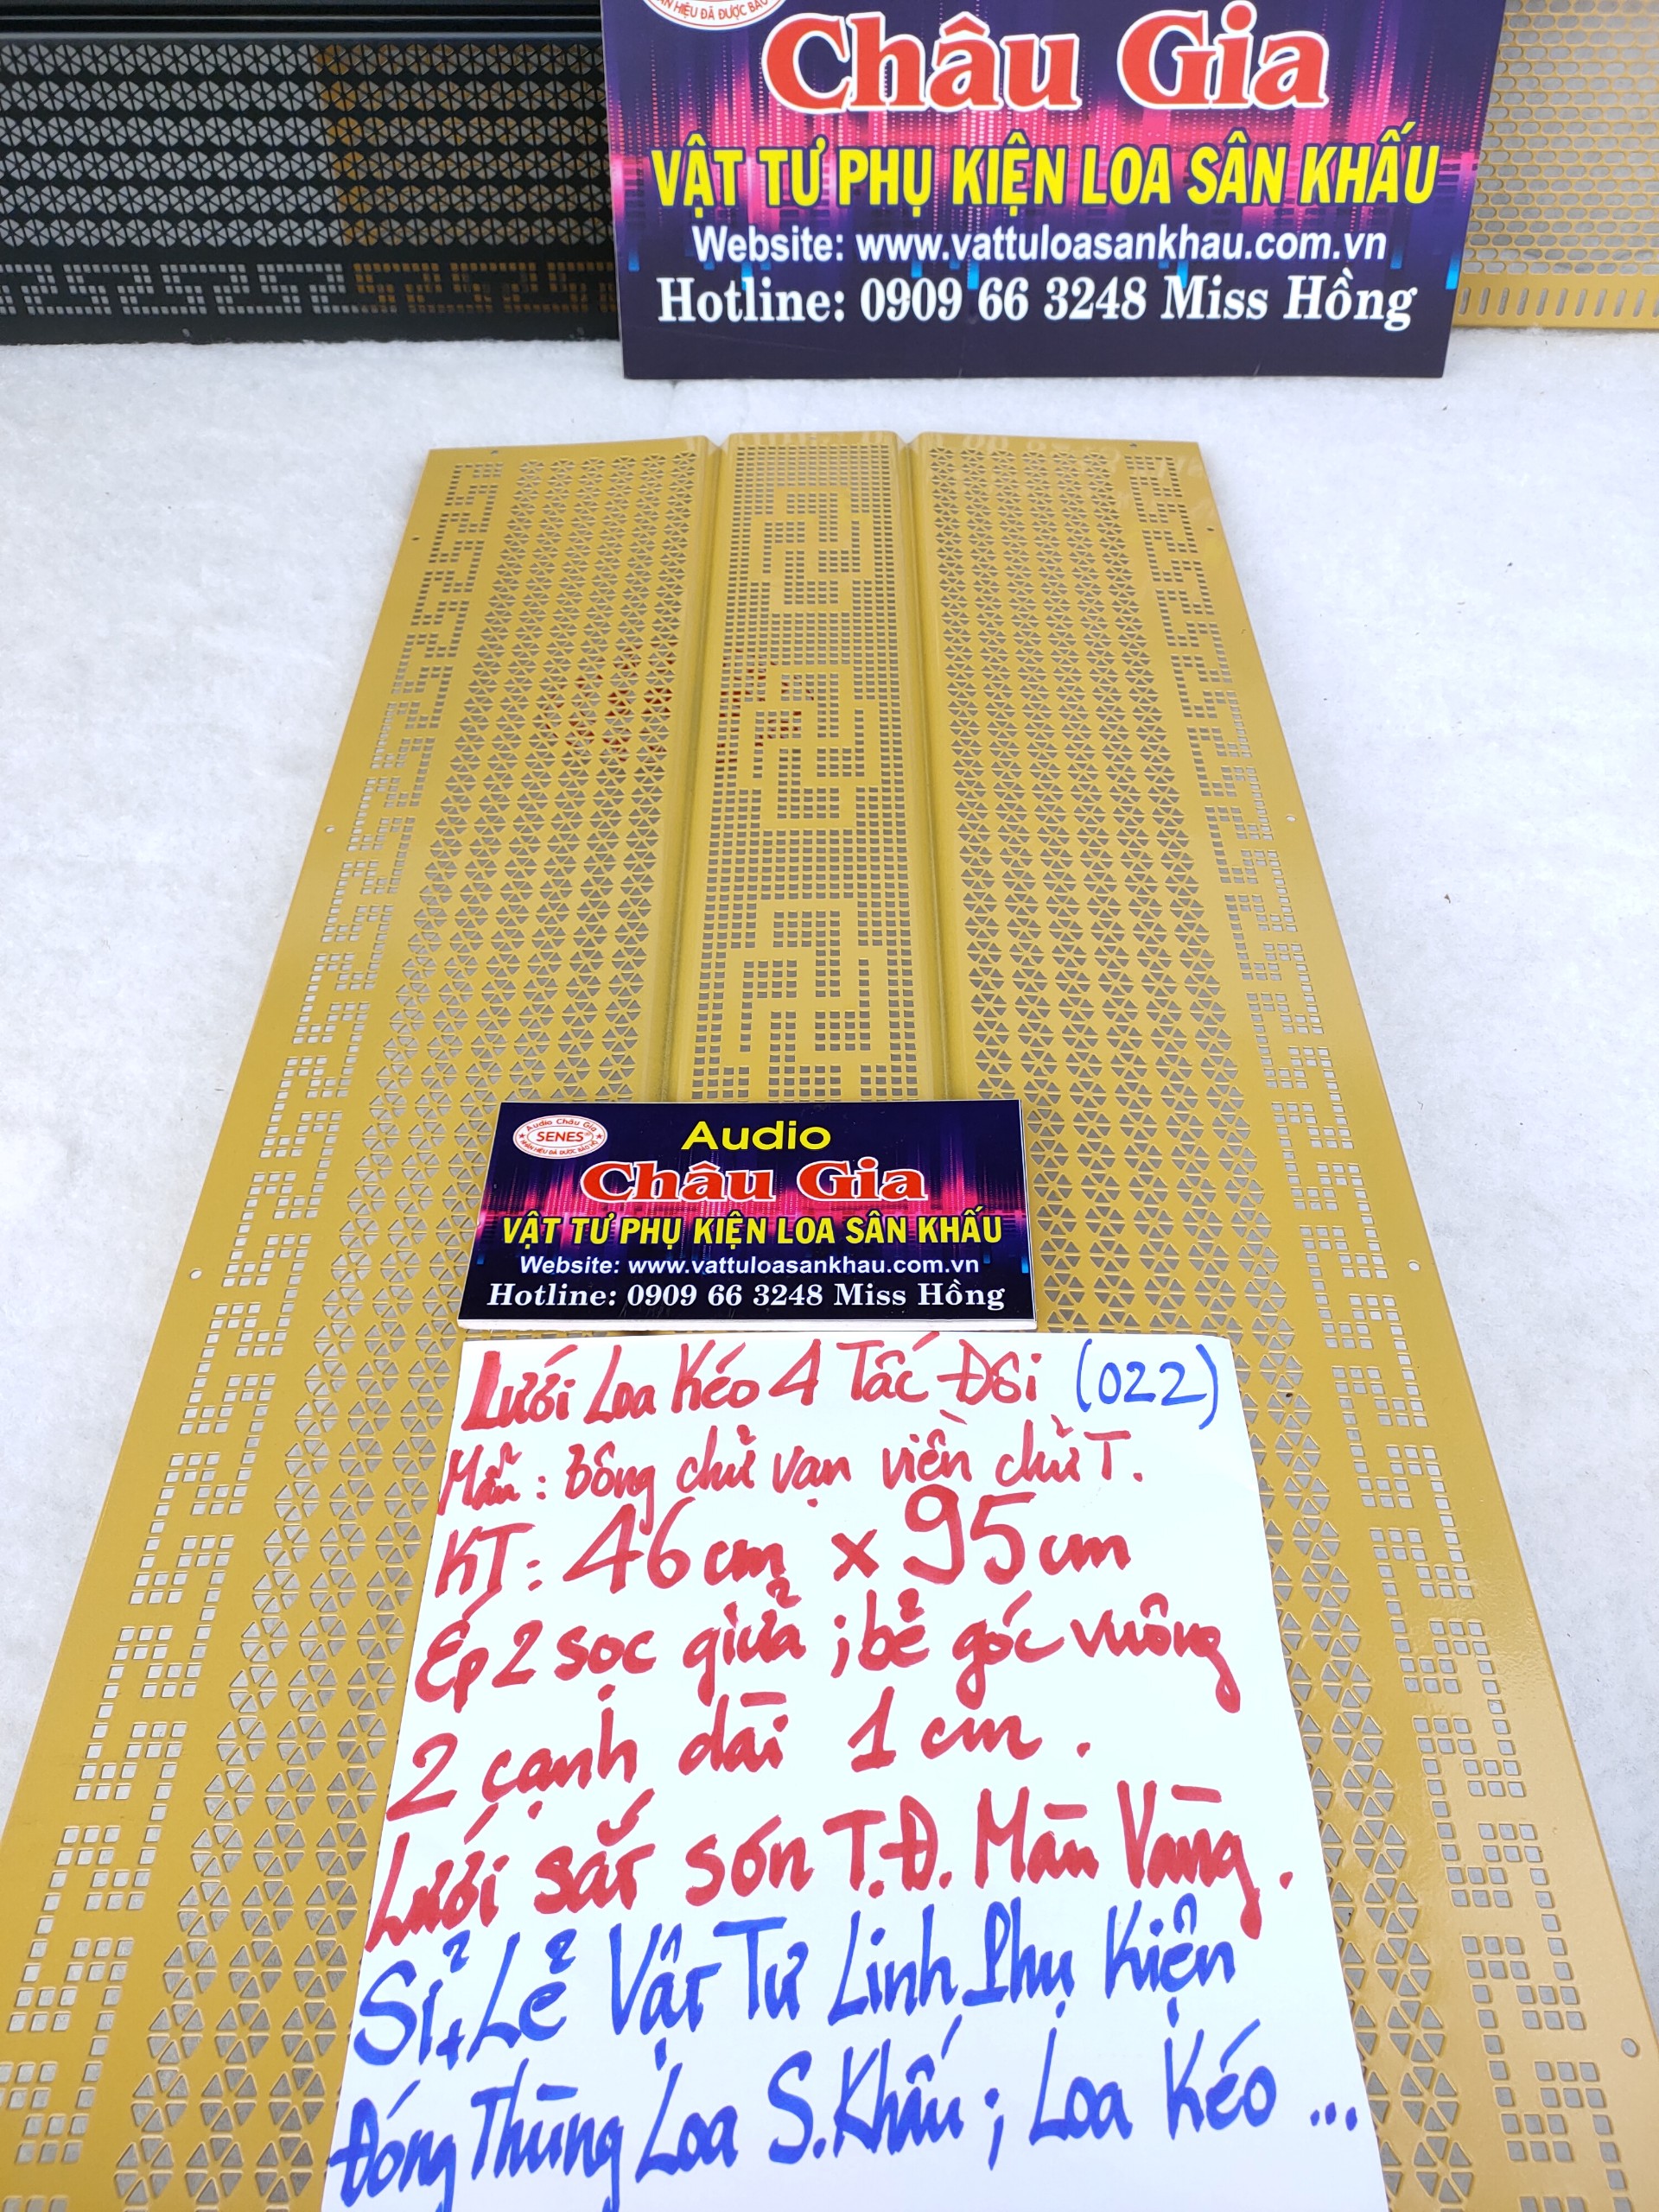 NHÃN HIỆU ĐÃ ĐƯỢC BẢO
Châu Gia
VẬT TƯ PHỤ KIỆN LOA SÂN KHẤU
Website: www.vattuloasankhau.com.vn
Hotline: 0909 66 3248 Miss Hồng
Audio Châu Gia
SENES
NHÃN HIỆU ĐÃ ĐƯỢC BẢO HỘ
Audio
Châu Gia
VẬT TƯ PHỤ KIỆN LOA SÂN KHẤU
Website: www.vattuloasankhau.com.vn
Hotline: 0909 66 3248 Miss Hồng
Lưới Loa Kéo 4 Tấc Đôi (022)
Mẫu: Bông chữ vạn viền chữ T.
KT: 46cm x 95cm
Ép 2 sọc giữa; bẻ góc vuông
2 cạnh dài 1cm.
Lưới sắt sơn T.Đ. Màu Vàng.
Sỉ + Lẻ Vật Tư Linh Phụ Kiện
Đóng Thùng Loa S.Khấu; Loa Kéo ...